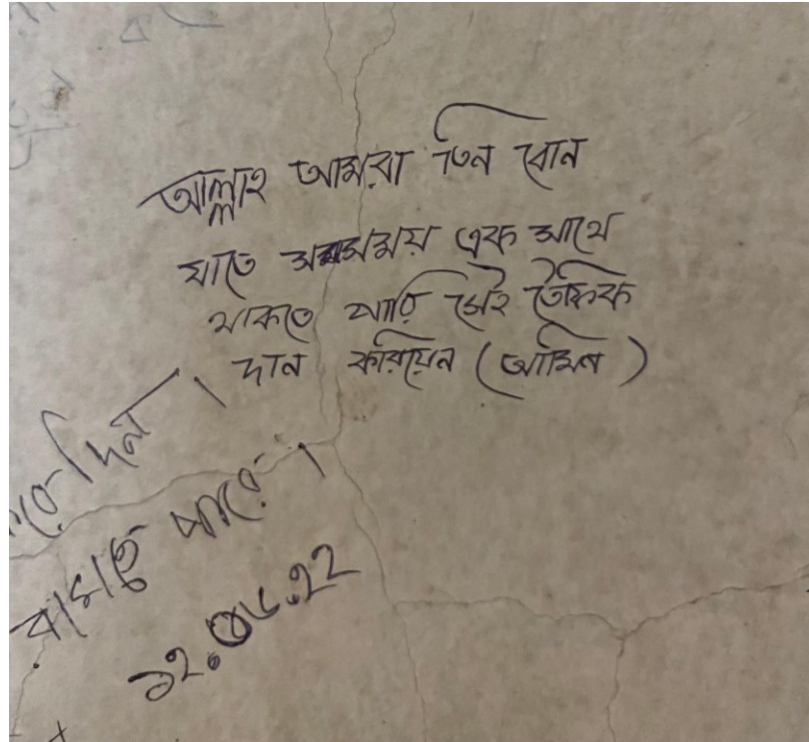 আল্লাহ আমরা তিন বোন
যাতে সবসময় এক সাথে
থাকতে পারি সেই তৈফিক
দান করিয়েন (আমিন)
রে দিন।
পারে।
১২.০৮.২২